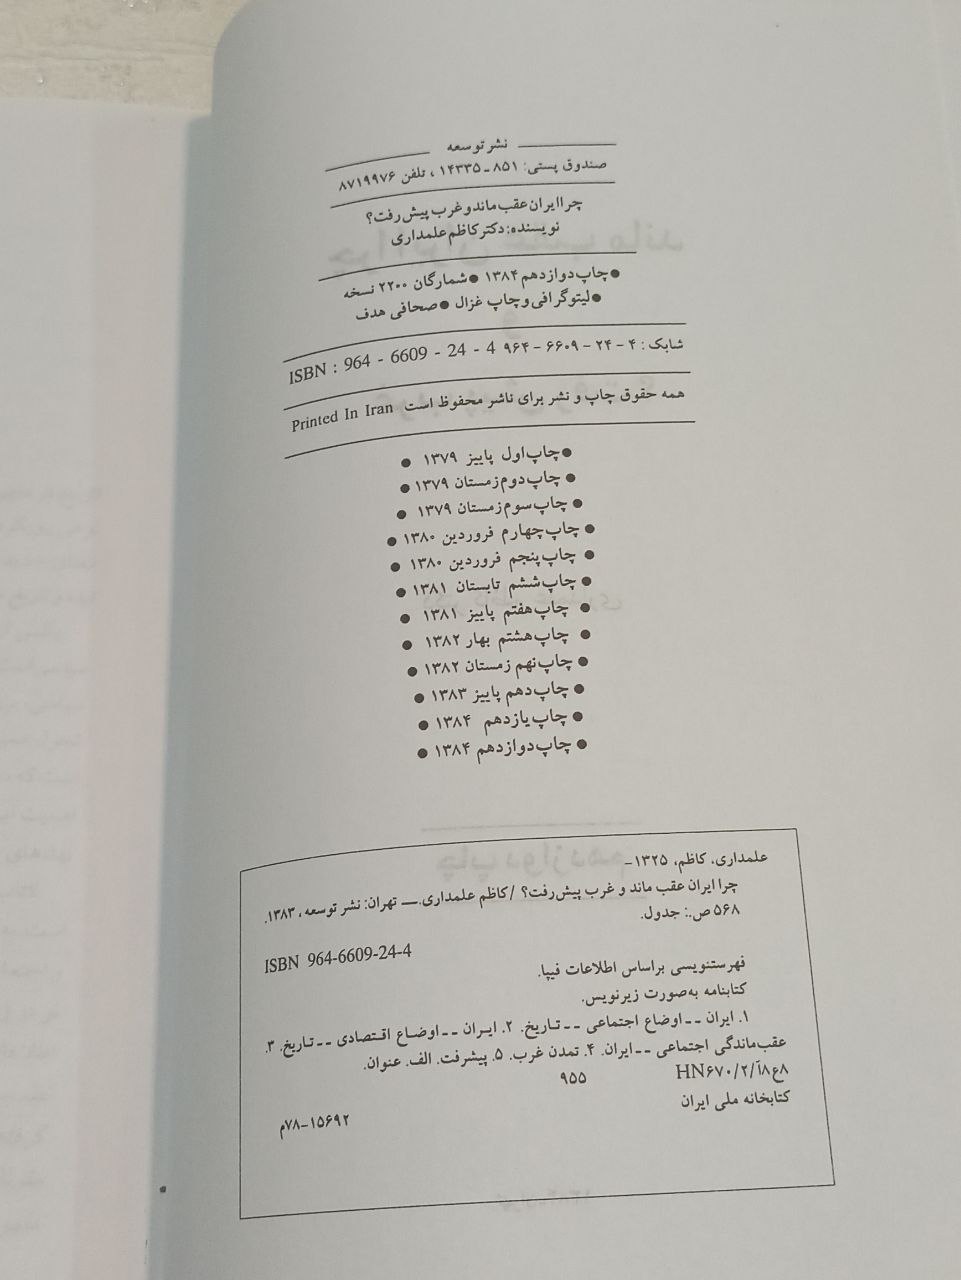 نشر توسعه
صندوق پستی: ۸۵۱ ـ ۱۴۳۳۵ ، تلفن ۸۷۱۹۹۷۶
چرا ایران عقب ماند و غرب پیش رفت؟
نویسنده: دکتر کاظم علمداری
●چاپ دوازدهم ۱۳۸۴ ●شمارگان ۲۲۰۰ نسخه
●لیتوگرافی و چاپ غزال ●صحافی هدف
شابک : ۴ - ۲۴ - ۶۶۰۹ - ۹۶۴ ISBN : 964 - 6609 - 24 - 4
همه حقوق چاپ و نشر برای ناشر محفوظ است Printed In Iran
●چاپ اول پاییز ۱۳۷۹ ●
●چاپ دوم زمستان ۱۳۷۹ ●
●چاپ سوم زمستان ۱۳۷۹ ●
●چاپ چهارم فروردین ۱۳۸۰ ●
●چاپ پنجم فروردین ۱۳۸۰ ●
●چاپ ششم تابستان ۱۳۸۱ ●
●چاپ هفتم پاییز ۱۳۸۱ ●
●چاپ هشتم بهار ۱۳۸۲ ●
●چاپ نهم زمستان ۱۳۸۲ ●
●چاپ دهم پاییز ۱۳۸۳ ●
●چاپ یازدهم ۱۳۸۴ ●
●چاپ دوازدهم ۱۳۸۴ ●
علمداری، کاظم، ۱۳۲۵–
چرا ایران عقب ماند و غرب پیش رفت؟ / کاظم علمداری.— تهران: نشر توسعه، ۱۳۸۳.
۵۶۸ ص.: جدول.
ISBN 964-6609-24-4
فهرستنویسی براساس اطلاعات فیپا.
کتابنامه به‌صورت زیرنویس.
۱. ایران -- اوضاع اجتماعی -- تاریخ. ۲. ایران -- اوضاع اقتصادی -- تاریخ. ۳.
عقب‌ماندگی اجتماعی -- ایران. ۴. تمدن غرب. ۵. پیشرفت. الف. عنوان.
۸ع۸آ/۲/HN۶۷۰ ۹۵۵
کتابخانه ملی ایران
۷۸-۱۵۶۹۲م